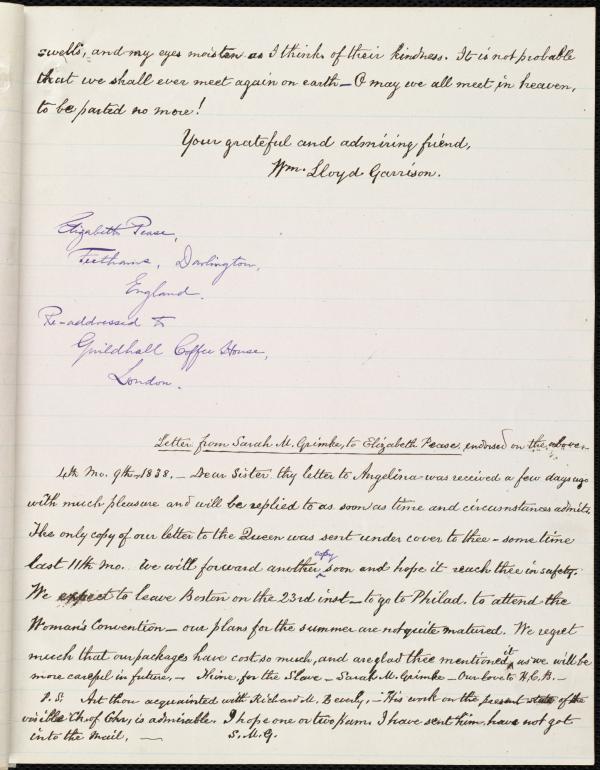 swells, and my eyes moisten as I think of their kindness. It is not probable
that we shall ever meet again on earth – O may we all meet in heaven,
to be parted no more!
Your grateful and admiring friend,
Wm. Lloyd Garrison.
Elizabeth Pease,
Feethams, Darlington,
England.
Re-addressed to
Guildhall Coffee House,
London.
Letter from Sarah M. Grimke, to Elizabeth Pease, endorsed on the above.
4th Mo. 9th – 1838. – Dear Sister thy letter to Angelina was received a few days ago
with much pleasure and will be replied to as soon as time and circumstances admit.
The only copy of our letter to the Queen was sent under cover to thee – some time
last 11th Mo. We will forward another copy soon and hope it reach thee in safety.
We expect to leave Boston on the 23rd inst – to go to Philad. to attend the
Woman's Convention – our plans for the summer are not quite matured. We regret
much that our packages have cost so much, and are glad thee mentioned it as we will be
more careful in future. – Thine, for the Slave – Sarah M. Grimke – Our love to H.C.B. –
P.S. Art thou acquainted with Richard M. Beverly, – His work on the present state of the
visible Ch. of Chr, is admirable. I hope one or two pam. I have sent him, have not got
into the mail. – S. M. G.